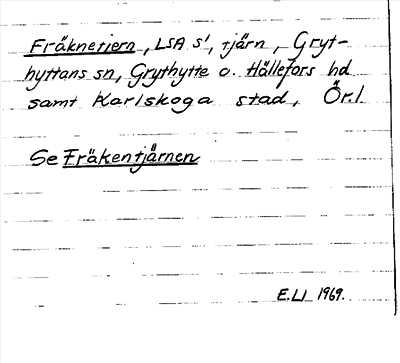 Fräknetiern, LSA s', tjärn, Gryt-
hyttans sn, Grythytte o. Hällefors hd
samt Karlskoga stad, Ör.l.
Se Fräkentjärnen
E.LJ 1969.